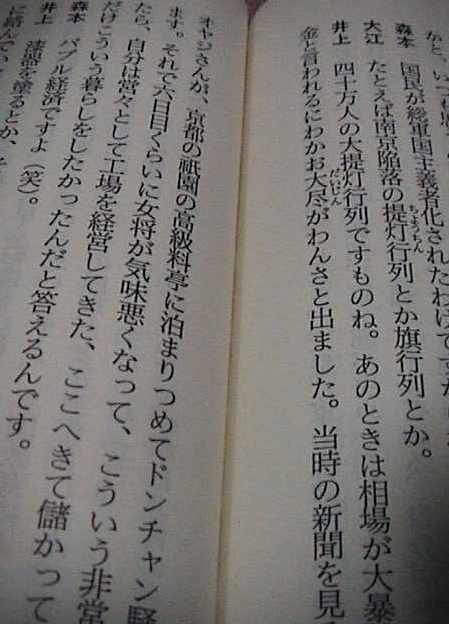 国民が総軍国主義者化されたわけですから
森本　たとえば南京陥落の提灯行列とか旗行列とか。
ちょうちん
大江　四十万人の大提灯行列ですものね。あのときは相場が大暴
井上　金と言われるにわかお大尽がわんさと出ました。当時の新聞を見
だいじん
オヤジさんが、京都の祇園の高級料亭に泊まりつめてドンチャン騒
ます。それで六日目くらいに女将が気味悪くなって、こういう非常
たら、自分は営々として工場を経営してきた、ここへきて儲かって
だけこういう暮らしをしたかったんだと答えるんです。
森本　バブル経済ですよ（笑）。
井上　漆器を塗るとか、